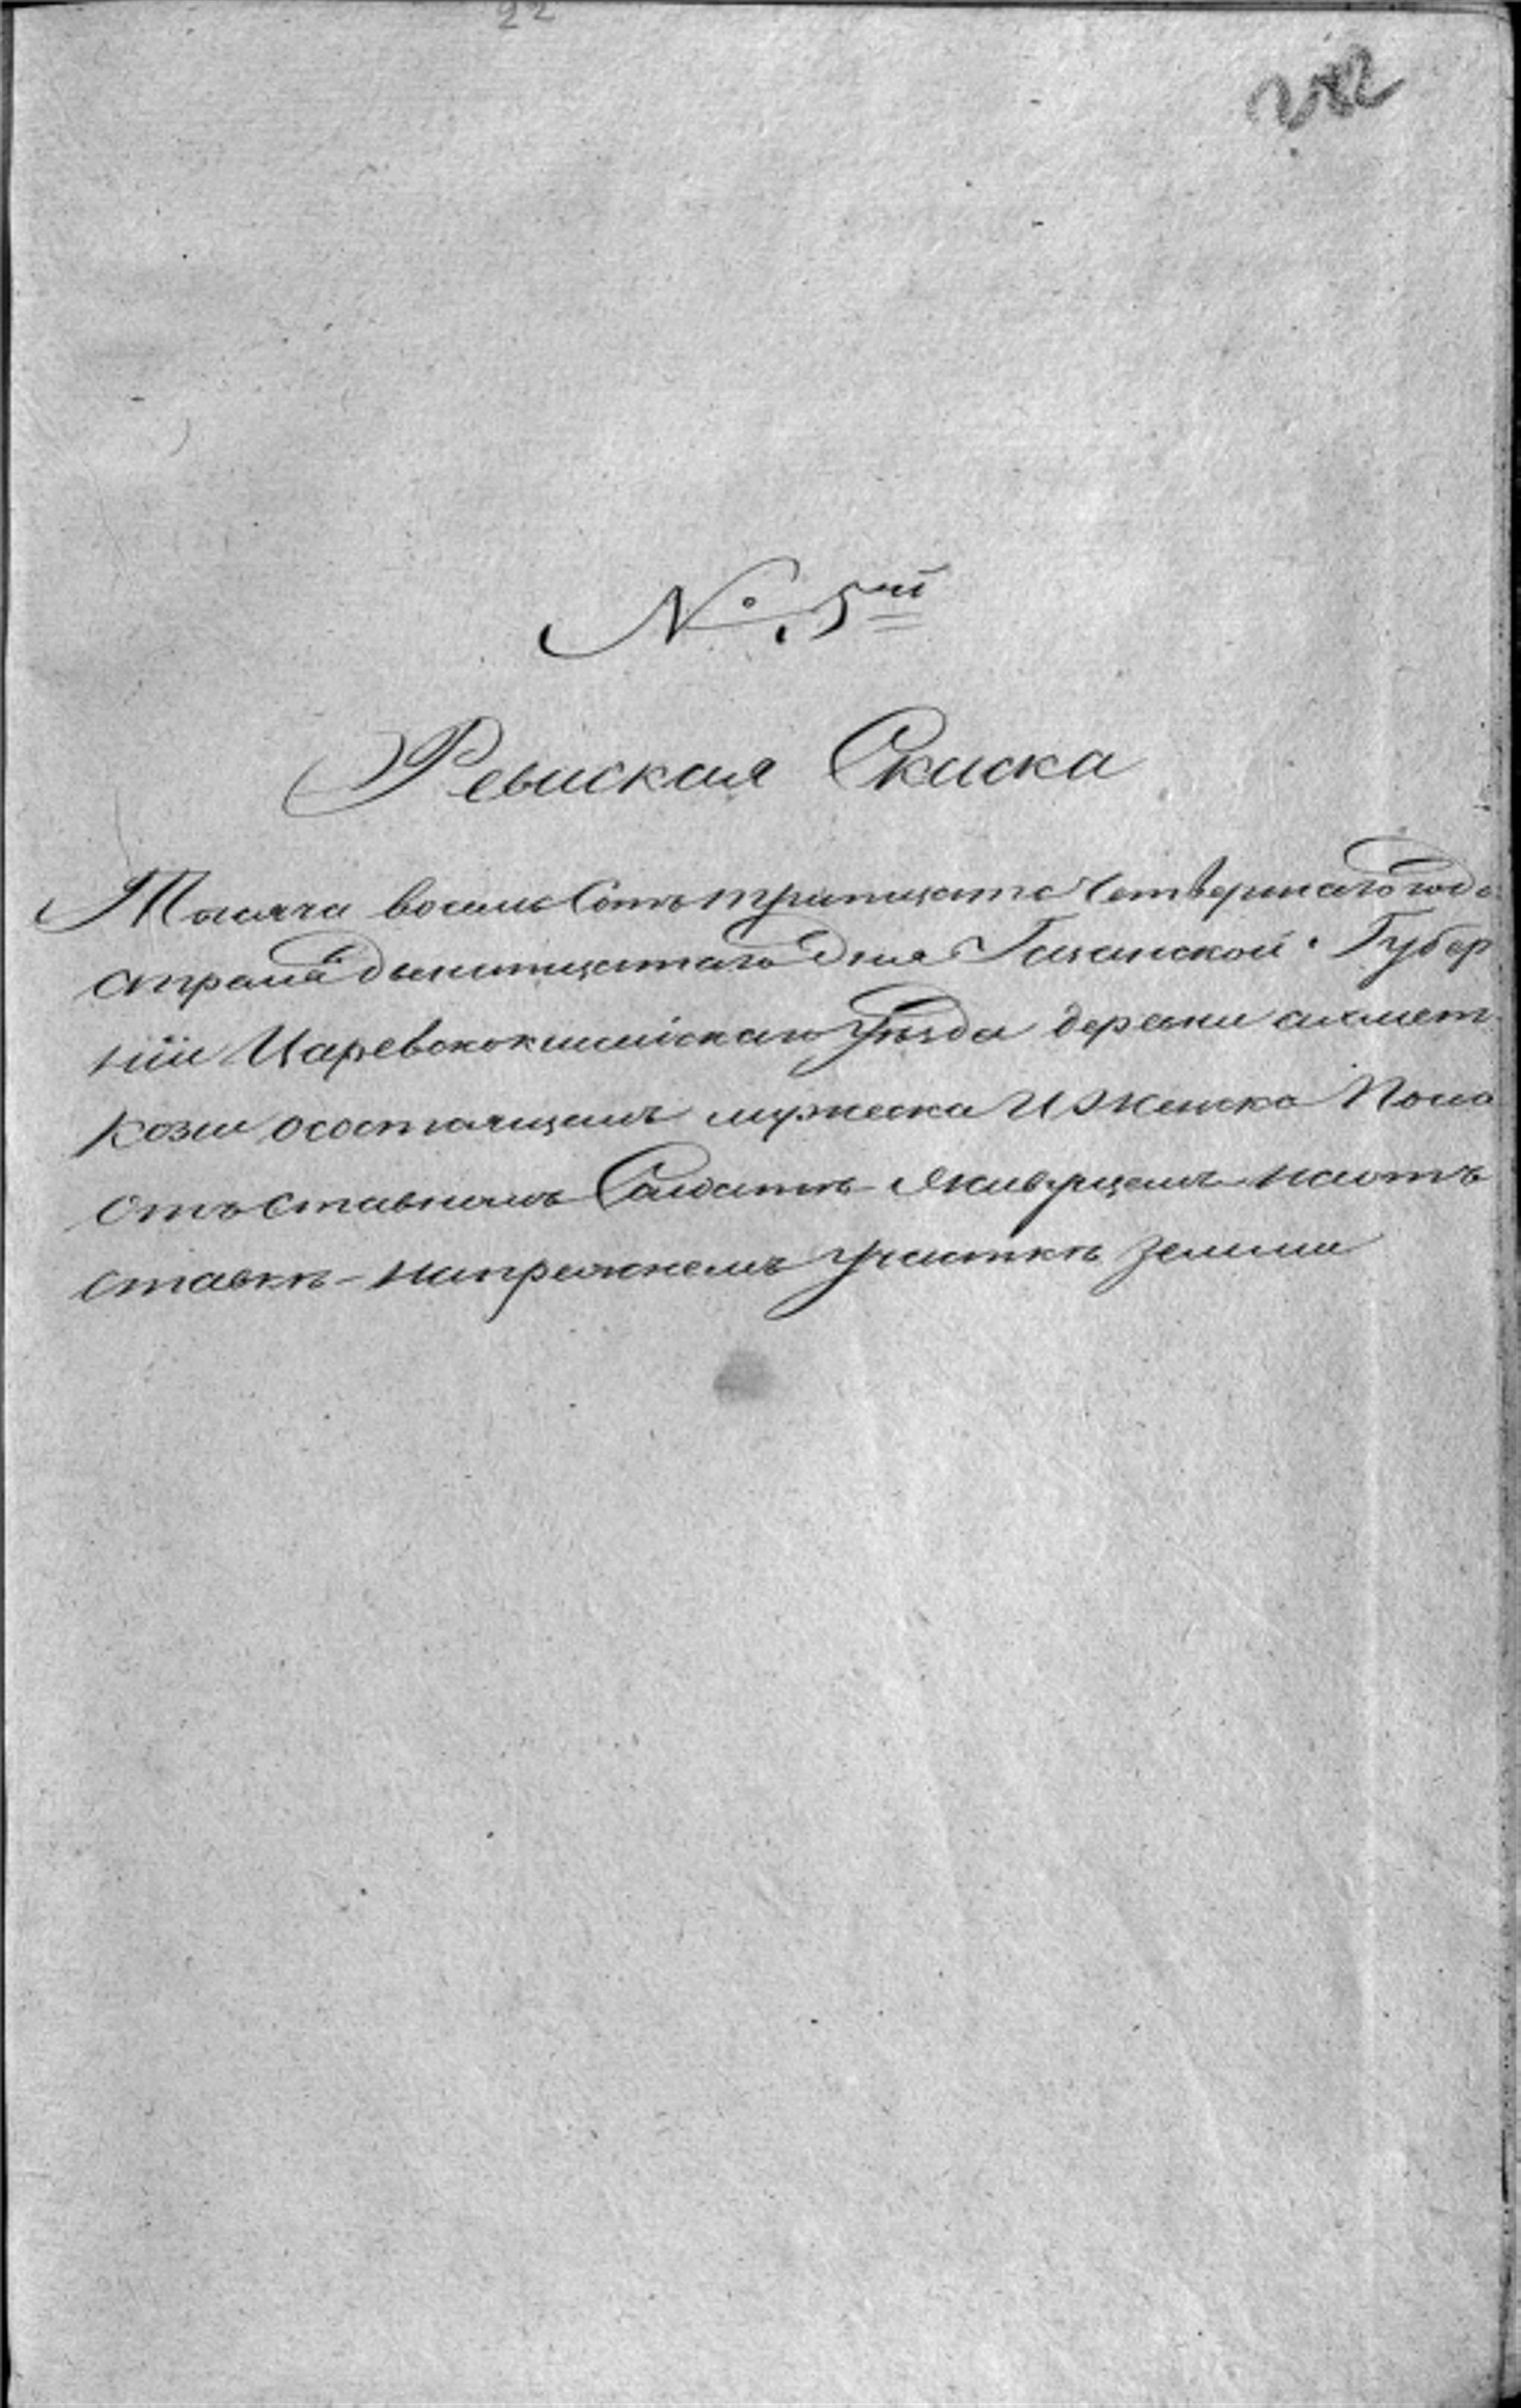 22
№. 5ый
Ревиская Скаска
Тысяча восемь сотъ тритцать четвертаго года
апреля двенатцатаго дня Казанской Губер
ніи Царевококшайскаго уѣзда деревни ахмет
кози осостоящемъ мужеска И Женска Пола
отъставномъ Салдатѣ Живущемъ наотъ
ставкѣ напрежнемъ участкѣ земли